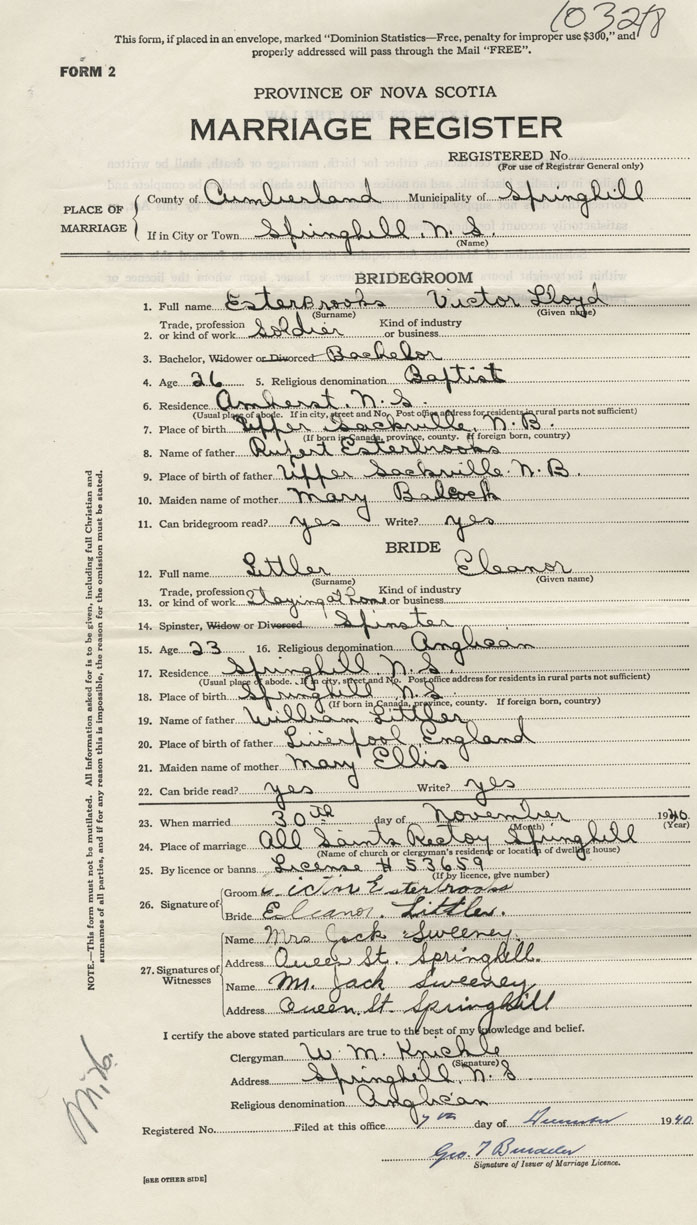 10328
This form, if placed in an envelope, marked "Dominion Statistics—Free, penalty for improper use $300," and
properly addressed will pass through the Mail "FREE".
FORM 2
PROVINCE OF NOVA SCOTIA
MARRIAGE REGISTER
REGISTERED No.
(For use of Registrar General only)
PLACE OF MARRIAGE
County of Cumberland Municipality of Springhill
If in City or Town Springhill, N. S.
(Name)
BRIDEGROOM
1. Full name Esterbrooks Victor Lloyd
(Surname) (Given name)
2. Trade, profession or kind of work Soldier Kind of industry or business
3. Bachelor, Widower or Divorced Bachelor
4. Age 26 5. Religious denomination Baptist
6. Residence Amherst, N. S.
(Usual place of abode. If in city, street and No. Post office address for residents in rural parts not sufficient)
7. Place of birth Upper Sackville, N. B.
(If born in Canada, province, county. If foreign born, country)
8. Name of father Rupert Esterbrooks
9. Place of birth of father Upper Sackville. N. B.
10. Maiden name of mother Mary Babcock
11. Can bridegroom read? yes Write? yes
BRIDE
12. Full name Littler Eleanor
(Surname) (Given name)
13. Trade, profession or kind of work Staying at home Kind of industry or business
14. Spinster, Widow or Divorced Spinster
15. Age 23 16. Religious denomination Anglican
17. Residence Springhill N. S.
(Usual place of abode. If in city, street and No. Post office address for residents in rural parts not sufficient)
18. Place of birth Springhill N. S.
(If born in Canada, province, county. If foreign born, country)
19. Name of father William Littler
20. Place of birth of father Liverpool, England
21. Maiden name of mother Mary Ellis
22. Can bride read? yes Write? yes
23. When married 30th day of November 1940.
(Month) (Year)
24. Place of marriage All Saints Rectoy Springhill
(Name of church or clergyman's residence or location of dwelling house)
25. By licence or banns License # 53659
(If by licence, give number)
26. Signature of
Groom Victor Esterbrooks
Bride Eleanor. Littler.
27. Signatures of Witnesses
Name Mrs Jack Sweeney.
Address Queen St. Springhill.
Name Mr. Jack Sweeney
Address Queen. St. Springhill
I certify the above stated particulars are true to the best of my knowledge and belief.
Clergyman W. M. Knickle
(Signature)
Address Springhill, N. S
Religious denomination Anglican
Registered No. Filed at this office 7th day of December 1940.
Geo. T
Signature of Issuer of Marriage Licence.
[SEE OTHER SIDE]
NOTE.—This form must not be mutilated. All Information asked for is to be given, including full Christian and
surnames of all parties, and if for any reason this is impossible, the reason for the omission must be stated.